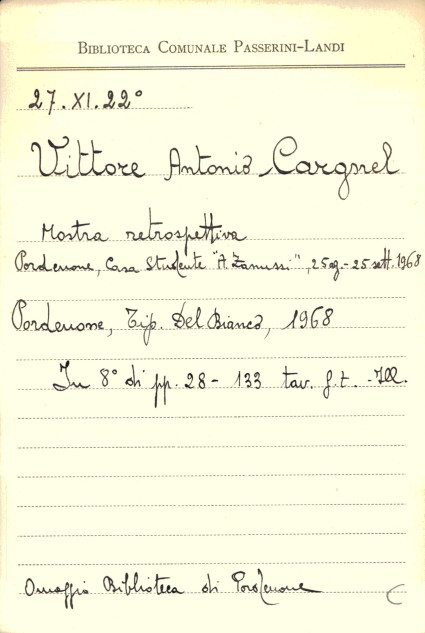 BIBLIOTECA COMUNALE PASSERINI-LANDI
27.XI.22°
Vittore Antonio Cargnel
Mostra retrospettiva
Pordenone, Casa Studente "A. Zanussi", 25 ag.-25 sett. 1968
Pordenone, Tip. Del Bianco, 1968
In 8° di pp. 28 - 133 tav. f.t. - Ill.
Omaggio Biblioteca di Pordenone C